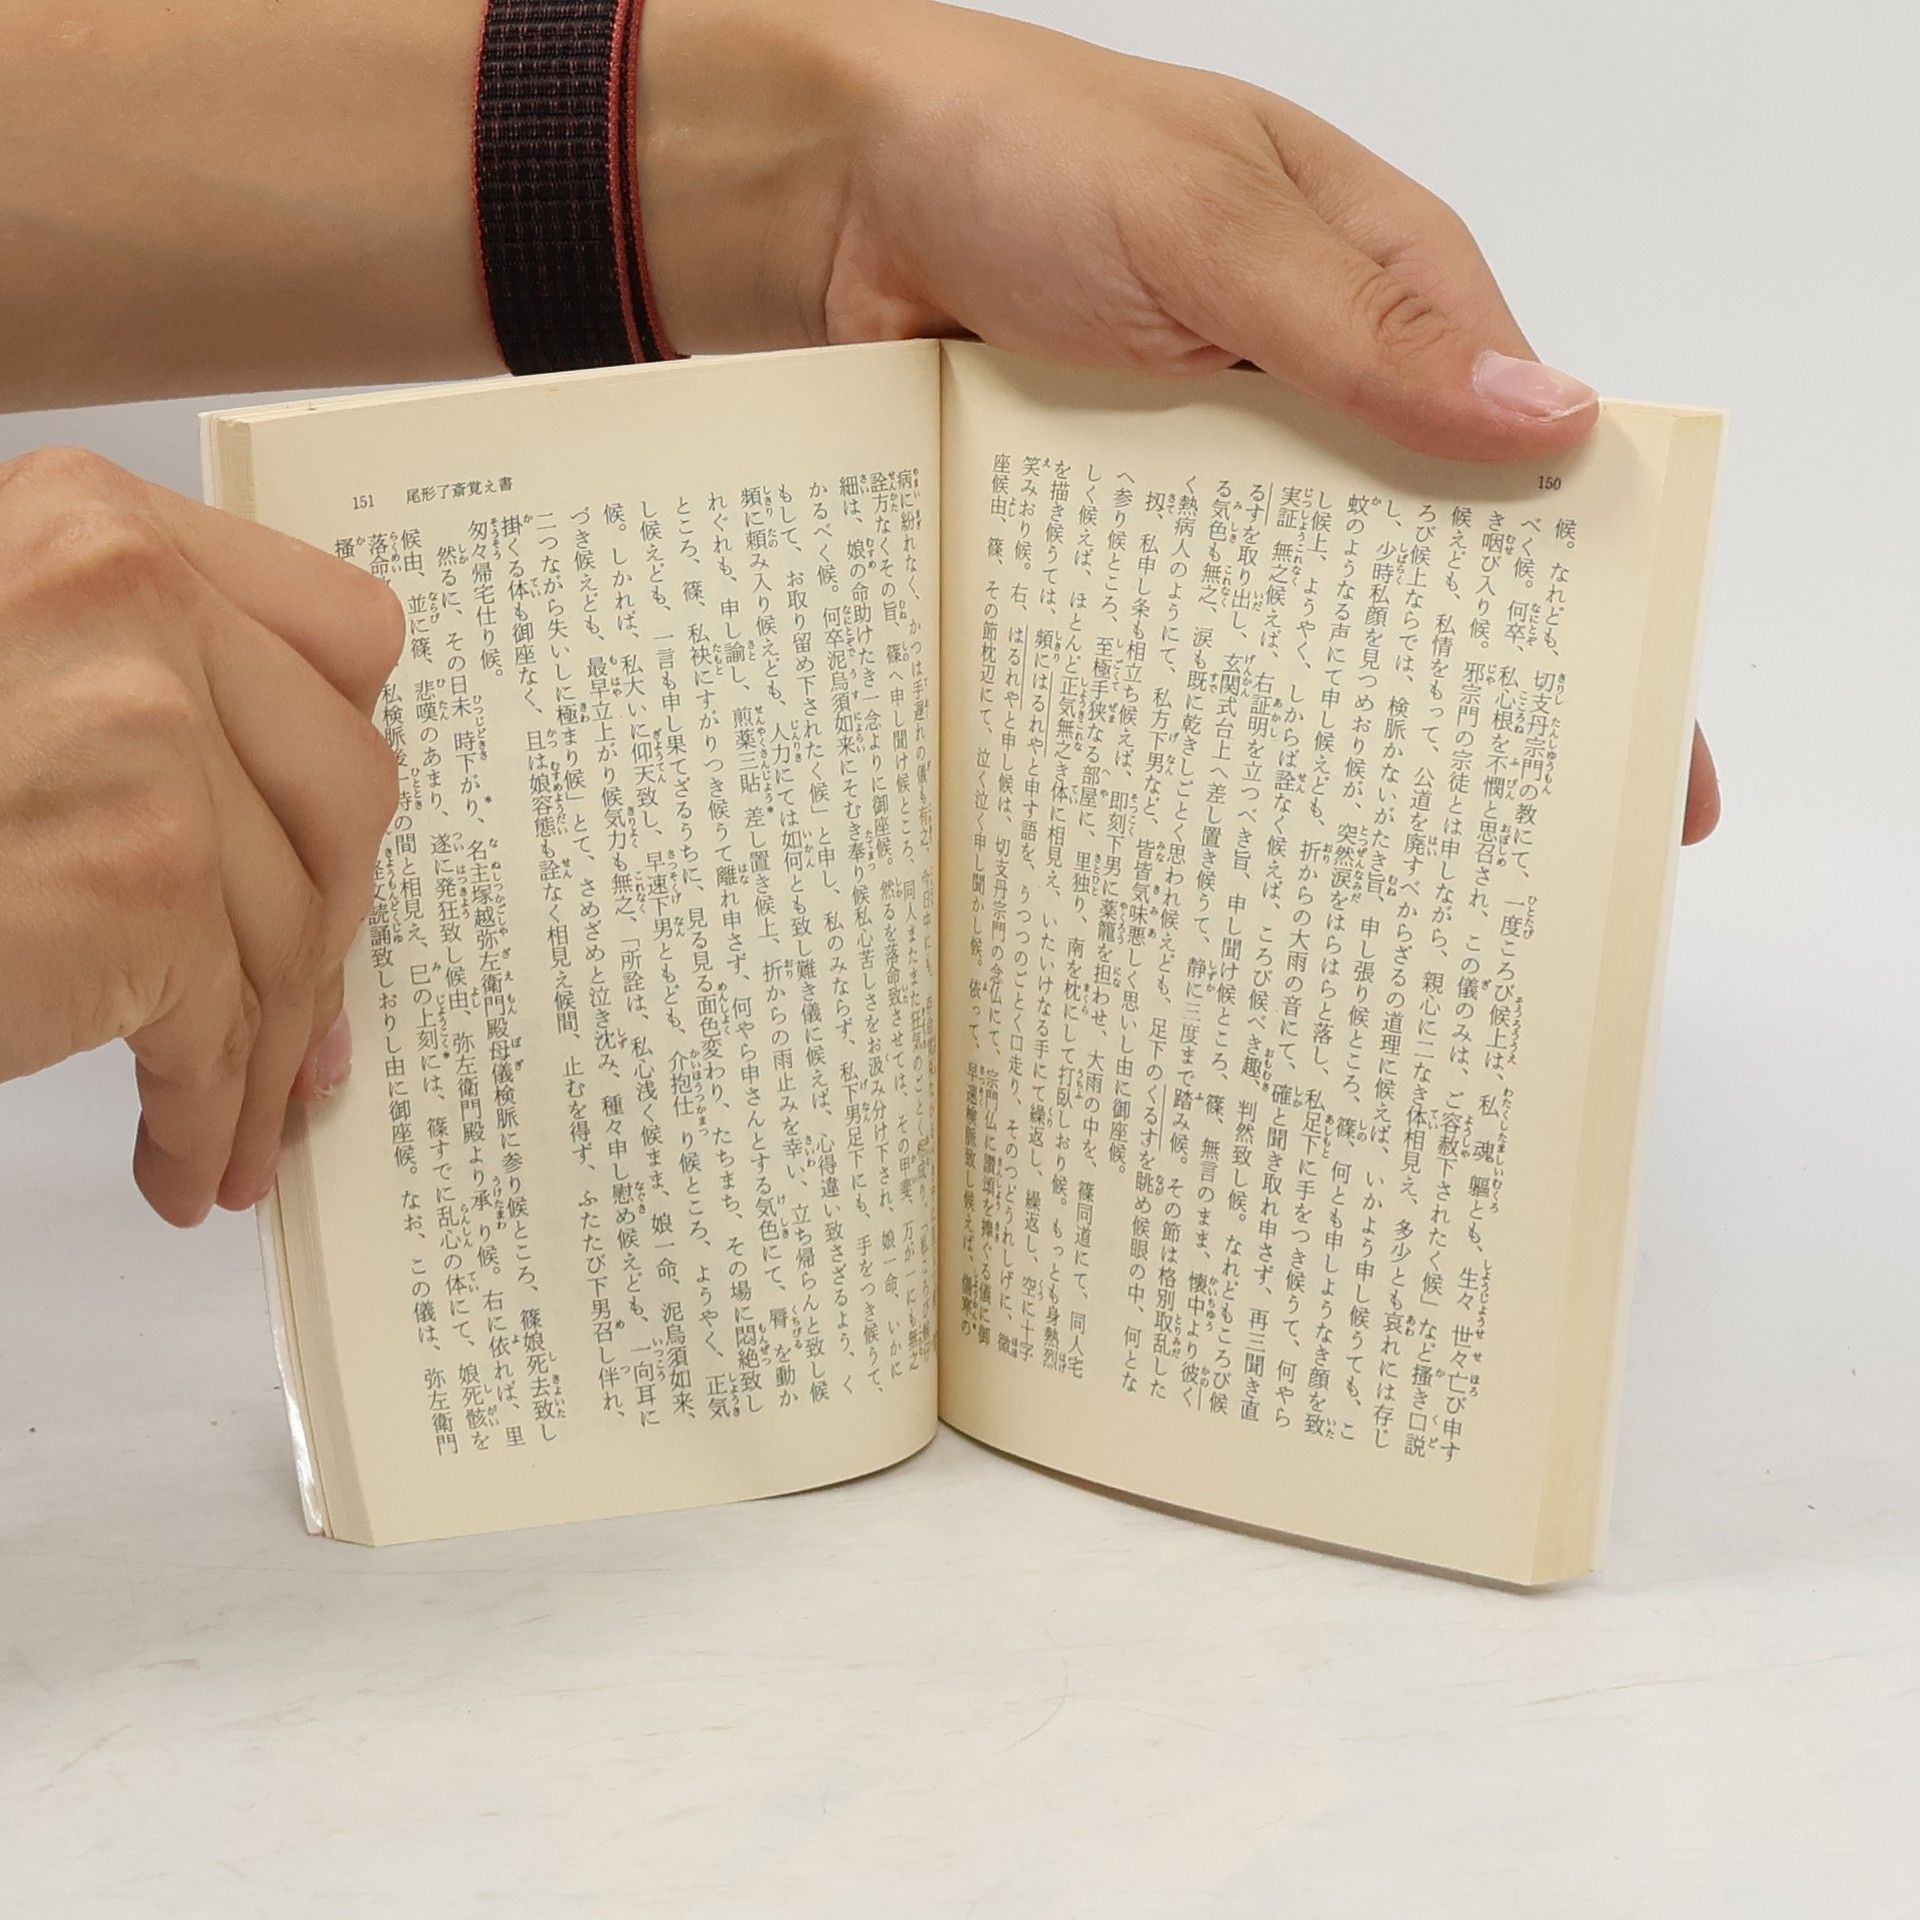 150
候。なれども、切支丹宗門の教にて、一度ころび候上は、私 魂 軀とも、生々 世々亡び申す
べく候。何卒、私心根を不憫と思召され、この儀のみは、ご容赦下されたく候」など掻き口説
き咽び入り候。邪宗門の宗徒とは申しながら、親心に二なき体相見え、多少とも哀れには存じ
候えども、私情をもって、公道を廃すべからざるの道理に候えば、いかよう申し候うても、こ
ろび候上ならでは、検脈かないがたき旨、申し張り候ところ、篠、何とも申しようなき顔を致
し、少時私顔を見つめおり候が、突然涙をはらはらと落し、私足下に手をつき候うて、何やら
蚊のようなる声にて申し候えども、折からの大雨の音にて、確と聞き取れ申さず、再三聞き直
し候上、ようやく、しからば詮なく候えば、ころび候べき趣、判然致し候。なれどもころび候
実証 無之候えば、右証明を立つべき旨、申し聞け候ところ、篠、無言のまま、懐中より彼く
るすを取り出し、玄関式台上へ差し置き候うて、静に三度まで踏み候。その節は格別取乱した
る気色も無之、涙も既に乾きしごとく思われ候えども、足下のくるすを眺め候眼の中、何とな
く熱病人のようにて、私方下男など、皆皆気味悪しく思いし由に御座候。
扨、私申し条も相立ち候えば、即刻下男に薬籠を担わせ、大雨の中を、篠同道にて、同人宅
へ参り候ところ、至極手狭なる部屋に、里独り、南を枕にして打臥しおり候。もっとも身熱烈
しく候えば、ほとんど正気無之き体に相見え、いたいけなる手にて繰返し、繰返し、空に十字
を描き候うては、頻にはるれやと申す語を、うつつのごとく口走り、そのつどうれしげに、微
笑みおり候。右、はるれやと申し候は、切支丹宗門の念仏にて、宗門仏に讃頌を捧ぐる儀に御
座候由、篠、その節枕辺にて、泣く泣く申し聞かし候。依って、早速検脈致し候えば、傷寒の
151 尾形了斎覚え書
病に紛れなく、かつは手遅れの儀も有之、今日中にも、
詮方なくその旨、篠へ申し聞け候ところ、同人またまた狂気のごとく相成り、「私ころび候
細は、娘の命助けたき一念よりに御座候。然るを落命致させては、その甲斐、万が一にも無之
かるべく候。何卒泥烏須如来にそむき奉り候私心苦しさをお汲み分け下され、娘一命、いかに
もして、お取り留め下されたく候」と申し、私のみならず、私下男足下にも、手をつき候うて、
頻に頼み入り候えども、人力にては如何とも致し難き儀に候えば、心得違い致さざるよう、く
れぐれも、申し諭し、煎薬三貼*差し置き候上、折からの雨止みを幸い、立ち帰らんと致し候
ところ、篠、私袂にすがりつき候うて離れ申さず、何やら申さんとする気色にて、脣を動か
し候えども、一言も申し果てざるうちに、見る見る面色変わり、たちまち、その場に悶絶致し
候。しかれば、私大いに仰天致し、早速下男ともども、介抱仕 り候ところ、ようやく、正気
づき候えども、最早立上がり候気力も無之、「所詮は、私心浅く候まま、娘一命、泥烏須如来、
二つながら失いしに極まり候」とて、さめざめと泣き沈み、種々申し慰め候えども、一向耳に
掛くる体も御座なく、且は娘容態も詮なく相見え候間、止むを得ず、ふたたび下男召し伴れ、
匆々帰宅仕り候。
然るに、その日未 時下がり、*名主塚越弥左衛門殿母儀検脈に参り候ところ、篠娘死去致し
候由、並に篠、悲嘆のあまり、遂に発狂致し候由、弥左衛門殿より承 り候。右に依れば、里
落命 私検脈後一時の間と相見え、巳の上刻*には、篠すでに乱心の体にて、娘死骸を
掻 経文読誦致しおりし由に御座候。なお、この儀は、弥左衛門